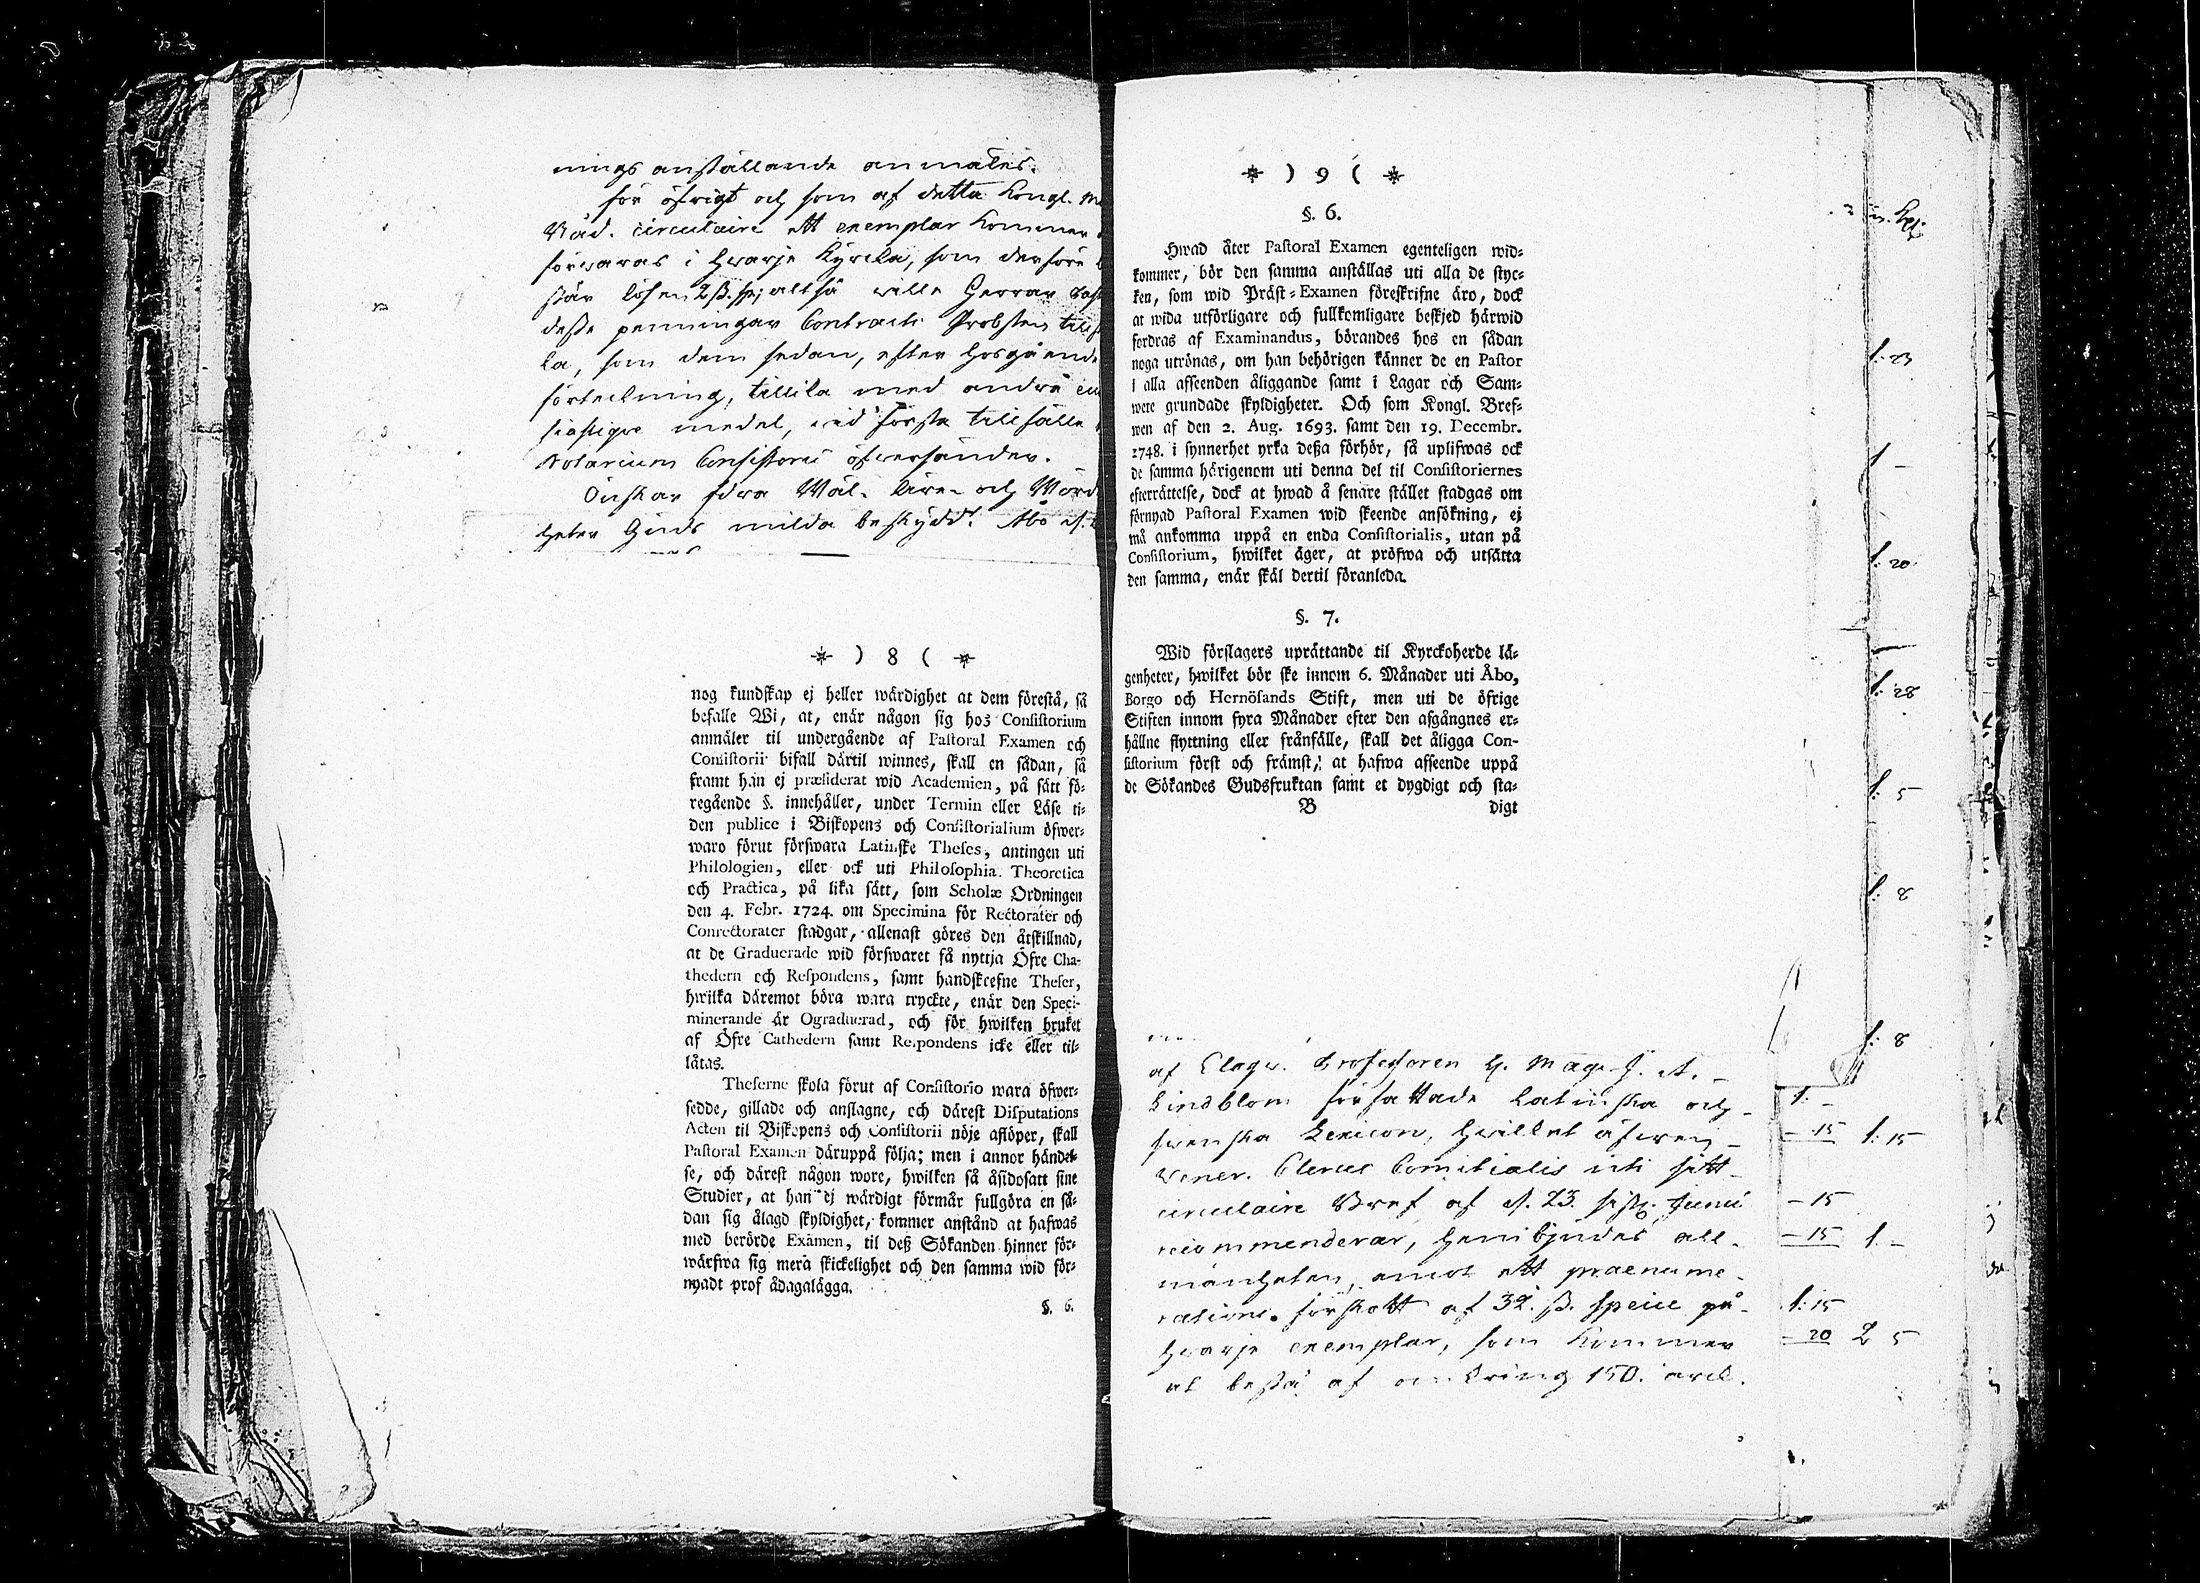 nings anställande anmäles.
för öfrigt och som af detta Kongl. M
Nåd. circulaire ett exemplar kommer
förwaras i hwarje Kyrcka, som derföre
står lösen 2 ß. sp; altså wille Herrar
desse penningar Contracts Probsten till
la, som dem sedan, efter hosgående
förteckning, tillika med andra
medel, wid första tillfälle
Notarium Consistorii öfwersänder.
Önskar Edra Wäl- Äre- och Wörd
heter Guds milda beskydd. Åbo d.
⁜ ) 8 ( ⁜
nog kundskap ej heller wärdighet at dem förestå, så
befalle Wi, at, enär någon sig hos Consistorium
anmäler til undergående af Pastoral Examen och
Consistorii bifall därtil winnes, skall en sådan, så
framt han ej præsiderat wid Academien, på sätt fö-
regående §. innehåller, under Termin eller Läse ti-
den publice i Biskopens och Consistorialium öfwer-
waro förut förswara Latinske Theses, antingen uti
Philologien, eller ock uti Philosophia Theoretica
och Practica, på lika sätt, som Scholæ Ordningen
den 4. Febr. 1724. om Specimina för Rectorater och
Conrectorater stadgar, allenast göres den åtskillnad,
at de Graduerade wid förswaret få nyttja Öfre Cha-
thedern och Respondens, samt handskrefne Theser,
hwilka däremot böra wara tryckte, enär den Speci-
minerande är Ograduerad, och för hwilken bruket
af Öfre Cathedern samt Respondens icke eller til-
låtas.
Theserne skola förut af Consistorio wara öfwer-
sedde, gillade och anslagne, och därest Disputations
Acten til Biskopens och Consistorii nöje aflöper, skall
Pastoral Examen däruppå följa; men i annor händel-
se, och därest någon wore, hwilken så åsidosatt sine
Studier, at han ej wärdigt förmår fullgöra en så-
dan sig ålagd skyldighet, kommer anstånd at hafwas
med berörde Examen, til deß Sökanden hinner för-
wärfwa sig mera skickelighet och den samma wid för-
nyadt prof ådagalägga.
§. 6.
⁜ ) 9 ( ⁜
§. 6.
Hwad åter Pastoral Examen egenteligen wid-
kommer, bör den samma anställas uti alla de styc-
ken, som wid Präst-Examen föreskrifne äro, dock
at wida utförligare och fullkomligare beskjed härwid
fordras af Examinandus, börandes hos en sådan
noga utrönas, om han behörigen känner de en Pastor
i alla afseenden åliggande samt i Lagar och Sam-
wete grundade skyldigheter. Och som Kongl. Bref-
wen af den 2. Aug. 1693. samt den 19. Decembr.
1748. i synnerhet yrka deßa förhör, så uplifwas ock
de samma härigenom uti denna del til Consistoriernes
efterrättelse, dock at hwad å senare stället stadgas om
förnyad Pastoral Examen wid skeende ansökning, ej
må ankomma uppå en enda Consistorialis, utan på
Consistorium, hwilket äger, at pröfwa och utsätta
den samma, enär skäl dertil föranleda.
§. 7.
Wid förslagers uprättande til Kyrckoherde lä-
genheter, hwilket bör ske innom 6. Månader uti Åbo,
Borgo och Hernösands Stift, men uti de öfrige
Stiften innom fyra Månader efter den afgångnes er-
hållne flyttning eller frånfälle, skall det åligga Con-
sistorium först och främst, at hafwa afseende uppå
de Sökandes Gudsfruktan samt et dygdigt och sta-
B digt
af Eloqv. Professoren H. Mag. J. A.
Lindblom författade Latinska och
swenska Lexicon, hwilket äfwen
Vener. Clerus Comitialis uti sitt
circulaire Bref af d. 23. sistl. Junii
recommenderar, hembjudes all-
mänheten, emot ett praenume-
rations-förskott af 32. ß. specie på
hwarje exemplar, som kommer
at bestå af omkring 150. arck.
1: 23
1 -
1: 20
1: 28
1: 5
1: 8
1: 8
1: -
- 15 1: 15
- 15
- 15 1 -
1: 15
- 20 2 5